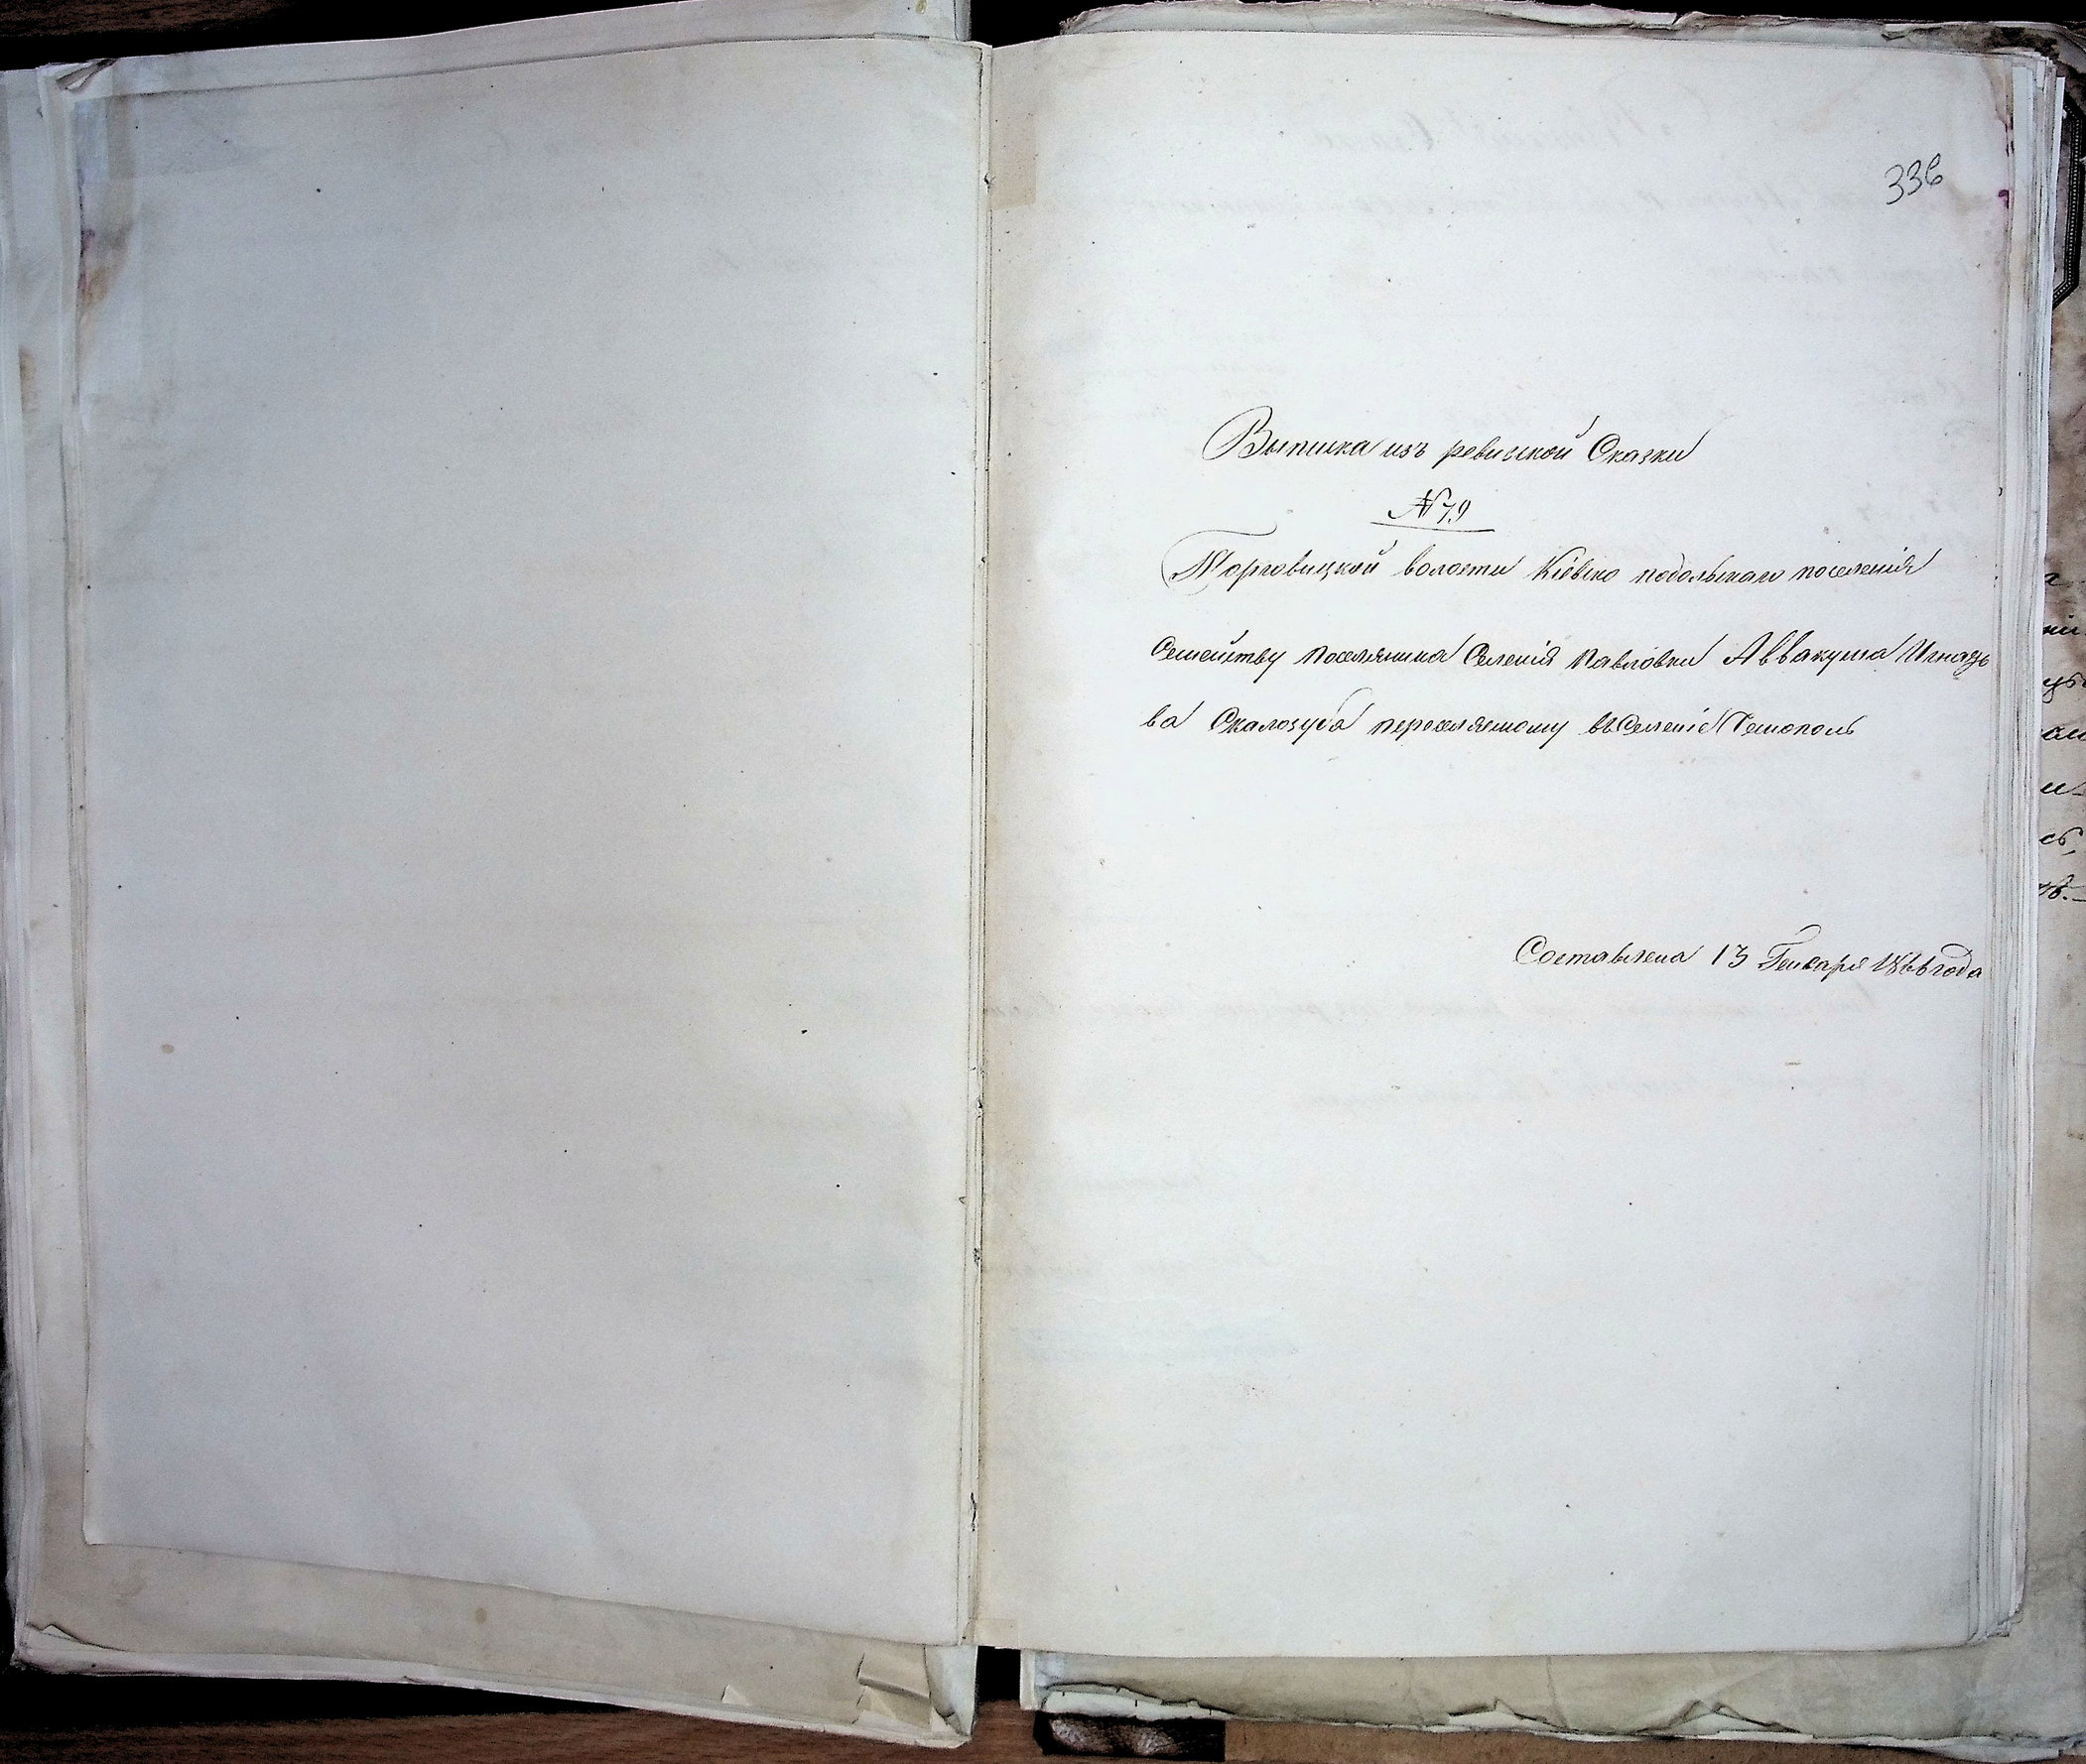 336
Выписка изъ ревиской Сказки
№ 79
Торговицкой волости Кіевко подольскаго поселенія
Семейству поселянина Селенія Павловки Аввакума Игнать
ва Скалозуба переселяемому въ Селеніе
Составлена 13 Генваря 1866 года